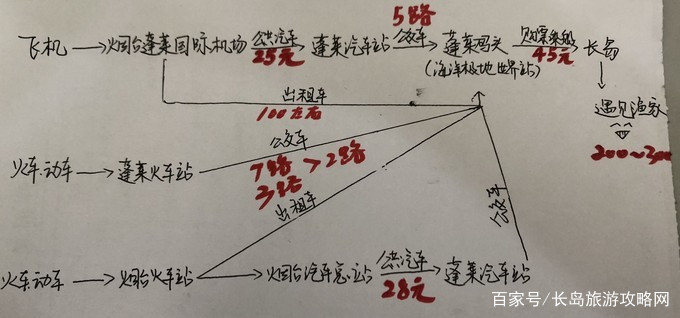 5路
飞机 → 烟台蓬莱国际机场 公共汽车 → 蓬莱汽车站 公交车 → 蓬莱码头 购票乘船 → 长岛
25元 45元
(海洋极地世界站)
出租车
100左右
遇见渔家
200~300
公交车
火车.动车 → 蓬莱火车站 7路 > 2路
3路
出租车
公交车
火车.动车 → 烟台火车站 → 烟台汽车总站 公共汽车 → 蓬莱汽车站
28元
百家号/长岛旅游攻略网